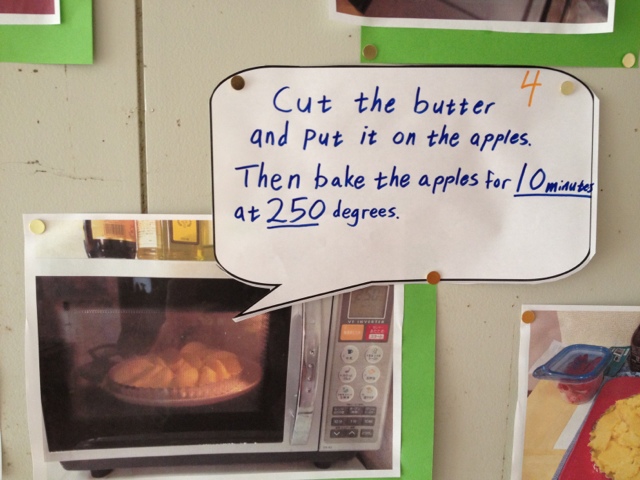 4
Cut the butter
and put it on the apples.
Then bake the apples for 10 minutes
at 250 degrees.